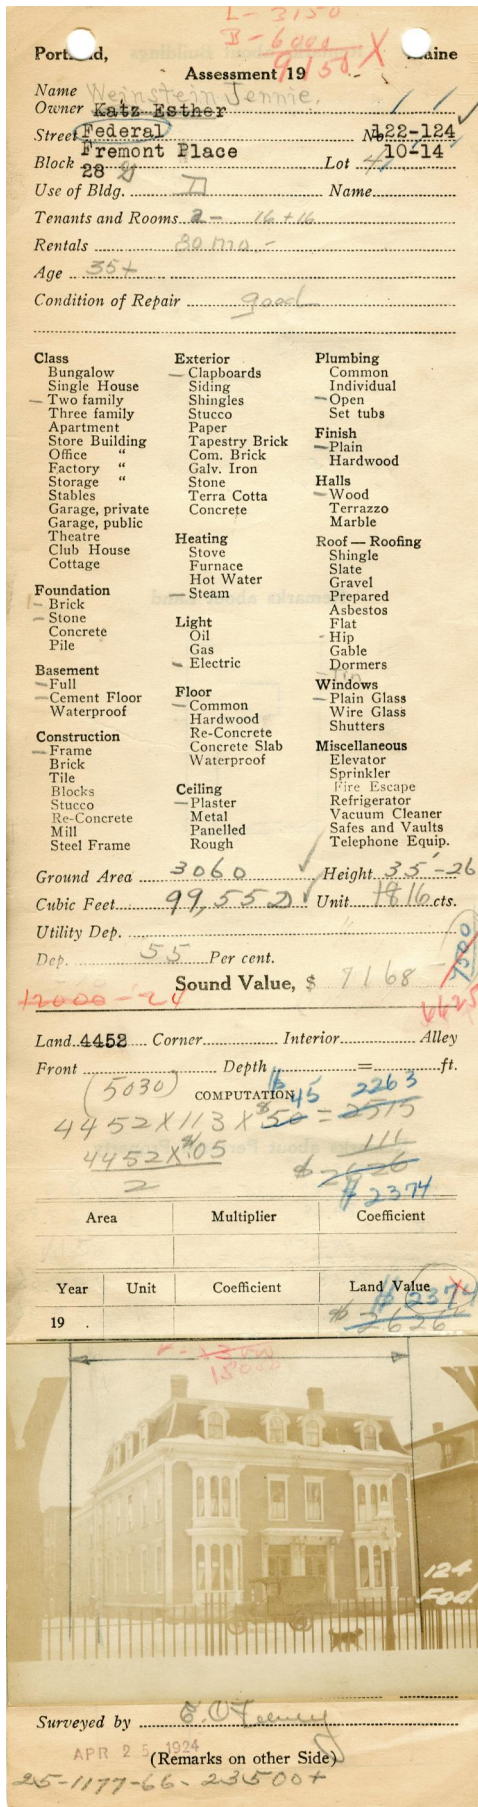 L - 3150
B - 6000
9150 X
Portland, Maine
Assessment 19
Name Weinstein Jennie.
Owner Katz Esther
Street Federal No. 122-124
Fremont Place 10-14
Block 28 Lot 4
Use of Bldg. Name
Tenants and Rooms 2 - 16 + 16
Rentals 80 mo. -
Age 35+
Condition of Repair good
Class
Bungalow
Single House
— Two family
Three family
Apartment
Store Building
Office "
Factory "
Storage "
Stables
Garage, private
Garage, public
Theatre
Club House
Cottage
Foundation
1 - Brick
— Stone
Concrete
Pile
Basement
— Full
— Cement Floor
Waterproof
Construction
— Frame
Brick
Tile
Blocks
Stucco
Re-Concrete
Mill
Steel Frame
Exterior
— Clapboards
Siding
Shingles
Stucco
Paper
Tapestry Brick
Com. Brick
Galv. Iron
Stone
Terra Cotta
Concrete
Heating
Stove
Furnace
Hot Water
— Steam
Light
Oil
Gas
— Electric
Floor
— Common
Hardwood
Re-Concrete
Concrete Slab
Waterproof
Ceiling
— Plaster
Metal
Panelled
Rough
Plumbing
Common
Individual
— Open
Set tubs
Finish
— Plain
Hardwood
Halls
— Wood
Terrazzo
Marble
Roof — Roofing
Shingle
Slate
Gravel
Prepared
Asbestos
Flat
- Hip
Gable
Dormers
— Tin
Windows
— Plain Glass
Wire Glass
Shutters
Miscellaneous
Elevator
Sprinkler
Fire Escape
Refrigerator
Vacuum Cleaner
Safes and Vaults
Telephone Equip.
Ground Area 3060 Height 35'-26
Cubic Feet 99,552 Unit 18 16 cts.
Utility Dep.
Dep. 55 Per cent. 7500
Sound Value, $ 7168
12000 - '24 6625
Land 4452 Corner Interior Alley
Front Depth = ft.
(5030) COMPUTATION $45 2263
4452 X 113 X $50 = 2515
4452 X $.05 111
2 $2626
$2374
Area Multiplier Coefficient
Year Unit Coefficient Land Value
$2374
19 . $2626
15000
124
Fed.
Surveyed by
APR 25 1924
(Remarks on other Side)
25-1177-66- 23500+